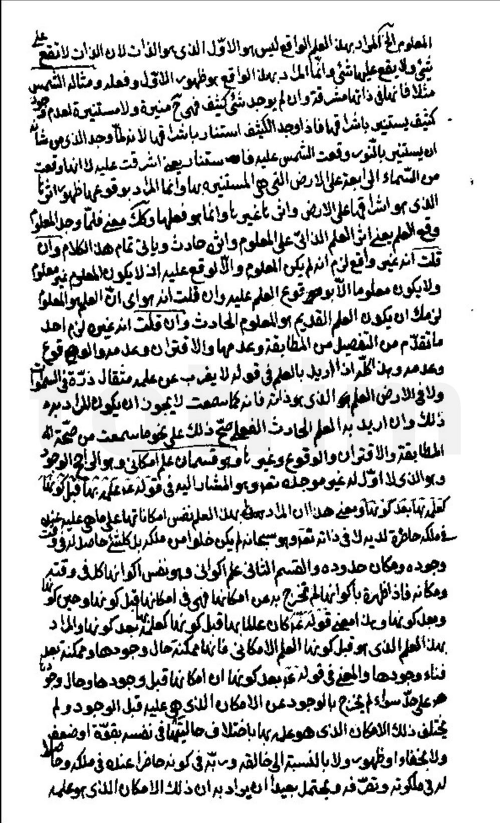 المعلوم الخ المراد بهذا العلم الواقع ليس هو الاول الذى هو الذات لان الذات لا تقع على
شئ ولا يقع عليها شئ وانما المراد بهذا الواقع هو ظهور الاول وفعله ومثاله الشمس
مثلا فانها فى ذاتها مشرقة وان لم يوجد شئ كثيف فهى ح منيرة ولا مستنيرة لعدم وجود
كثيف يستنير باشراقها فاذا وجد الكثيف استنار باشراقها لانه لما وجد الذى من شأنه
ان يستنير بالنور وقعت الشمس عليه فاستنار يعنى اشرقت عليه لا انها وقعت
من السماء الرابعة على الارض التى هى المستنيرة بها وانما المراد بوقوعها ظهور اثرها
الذى هو اشراقها على الارض واثرها غيرها وانما هو فعلها وكك معنى فلما وجد المعلوم
وقع العلم يعنى اثر العلم الذاتى على المعلوم واثره حادث وياتى تمام هذا الكلام وان
قلت انه غير واقع لزم انه لم يكن المعلوم والا لوقع عليه اذ لا يكون المعلوم غير معلوم
ولا يكون معلوما الا بوقوع العلم عليه وان قلت انه هو اى ان العلم هو المعلوم
لزمك ان يكون العلم القديم هو المعلوم الحادث وان قلت انه غيره لزم احد
ما تقدم من التفصيل من المطابقة وعدمها والاقتران وعدمه والوقوع
وعدمه وبهذا ظهر ان اريد بالعلم فى قوله لا يعزب عن علمه مثقال ذرة فى السموات
ولا فى الارض العلم الذى هو ذاته فانه كما سمعت لا يجوز ان يكون المراد به
ذلك وان اريد به العلم الحادث الفعلى صح ذلك على نحو ما سمعت من صحة
المطابقة والاقتران والوقوع وغيرها وهو قسمان علم امكانى وهو الراجح الوجود
وهو الذى لا اول له غير موجده تعم وهو المشار اليه فى قوله علمه بها قبل كونها
كعلمه بها بعد كونها ومعنى هذا ان المراد بهذا العلم نفس امكاناتها على ما هى عليه عنده
فى ملكه حاضرة لديه لا فى ذاته تعم وهو سبحانه لم يكن خلوا من ملكه بل كلشئ حاصل له فى وقت
وجوده ومكان حدوده والقسم الثانى علم اكوانى وهو نفس اكوانها كل فى وقته
ومكانه فاذا ظهرت باكوانها لم تخرج به عن امكانها فهى فى امكانها قبل كونها وحين كونها
وبعد كونها وبهذا معنى قوله كان عالما بها قبل كونها كعلمه بعد كونها والمراد
بهذا العلم الذى هو قبل كونها العلم الامكانى فانها ممكنة حال وجودها وممكنة بعد
فناء وجودها والمعنى فى قوله بعد كونها ان امكانها قبل وجودها وحال وجودها
هو على حد سواء لم يخرج بالوجود عن الامكان الذى هى عليه قبل الوجود ولم
يختلف ذلك الامكان الذى هو علمه بها باختلاف حالتيها فى نفسه بقوة او ضعف
ولا بخفاء او ظهور ولا بالنسبة الى خالقه وربه فى كونه حاضرا عنده فى ملكه وحاصلا
له فى ملكوته وتصرفه ويحتمل بعيدا ان يراد به ان ذلك الامكان الذى هو علمه